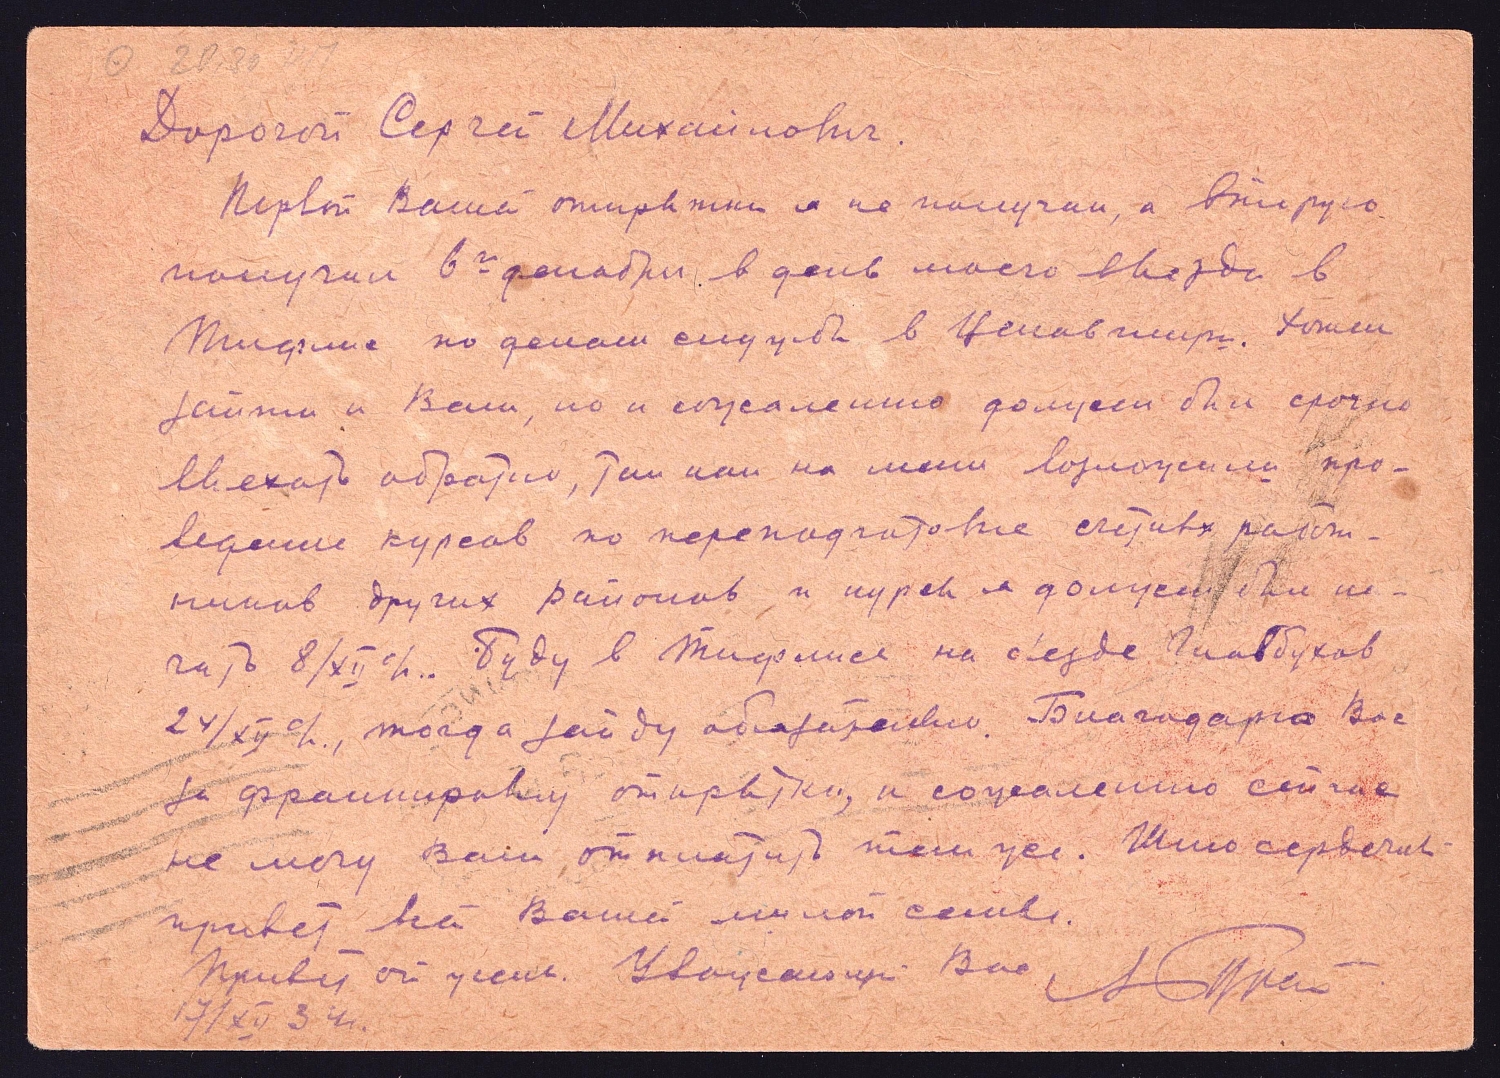 Дорогой Сергей Михайлович.
Первой Вашей открытки я не получил, а вторую
получил 6го декабря, в день моего выезда в
Тифлис по делам службы в Хотел
зайти к Вам, но к сожалению должен был срочно
выехать обратно, так как на меня возложили про-
ведение курсов по переподготовке счетных работ-
ников других районов и курсы я должен был на-
чать 8/XII с/г. Буду в Тифлисе на с'езде Главбухов
24/XII с/г., тогда зайду обязательно. Благодарю Вас
за франкировку открытки, к сожалению сейчас
не могу Вам отплатить тем же. Шлю сердечный
привет всей Вашей милой семье.
Привет от жены. Уважающий Вас
17/XII 34г.